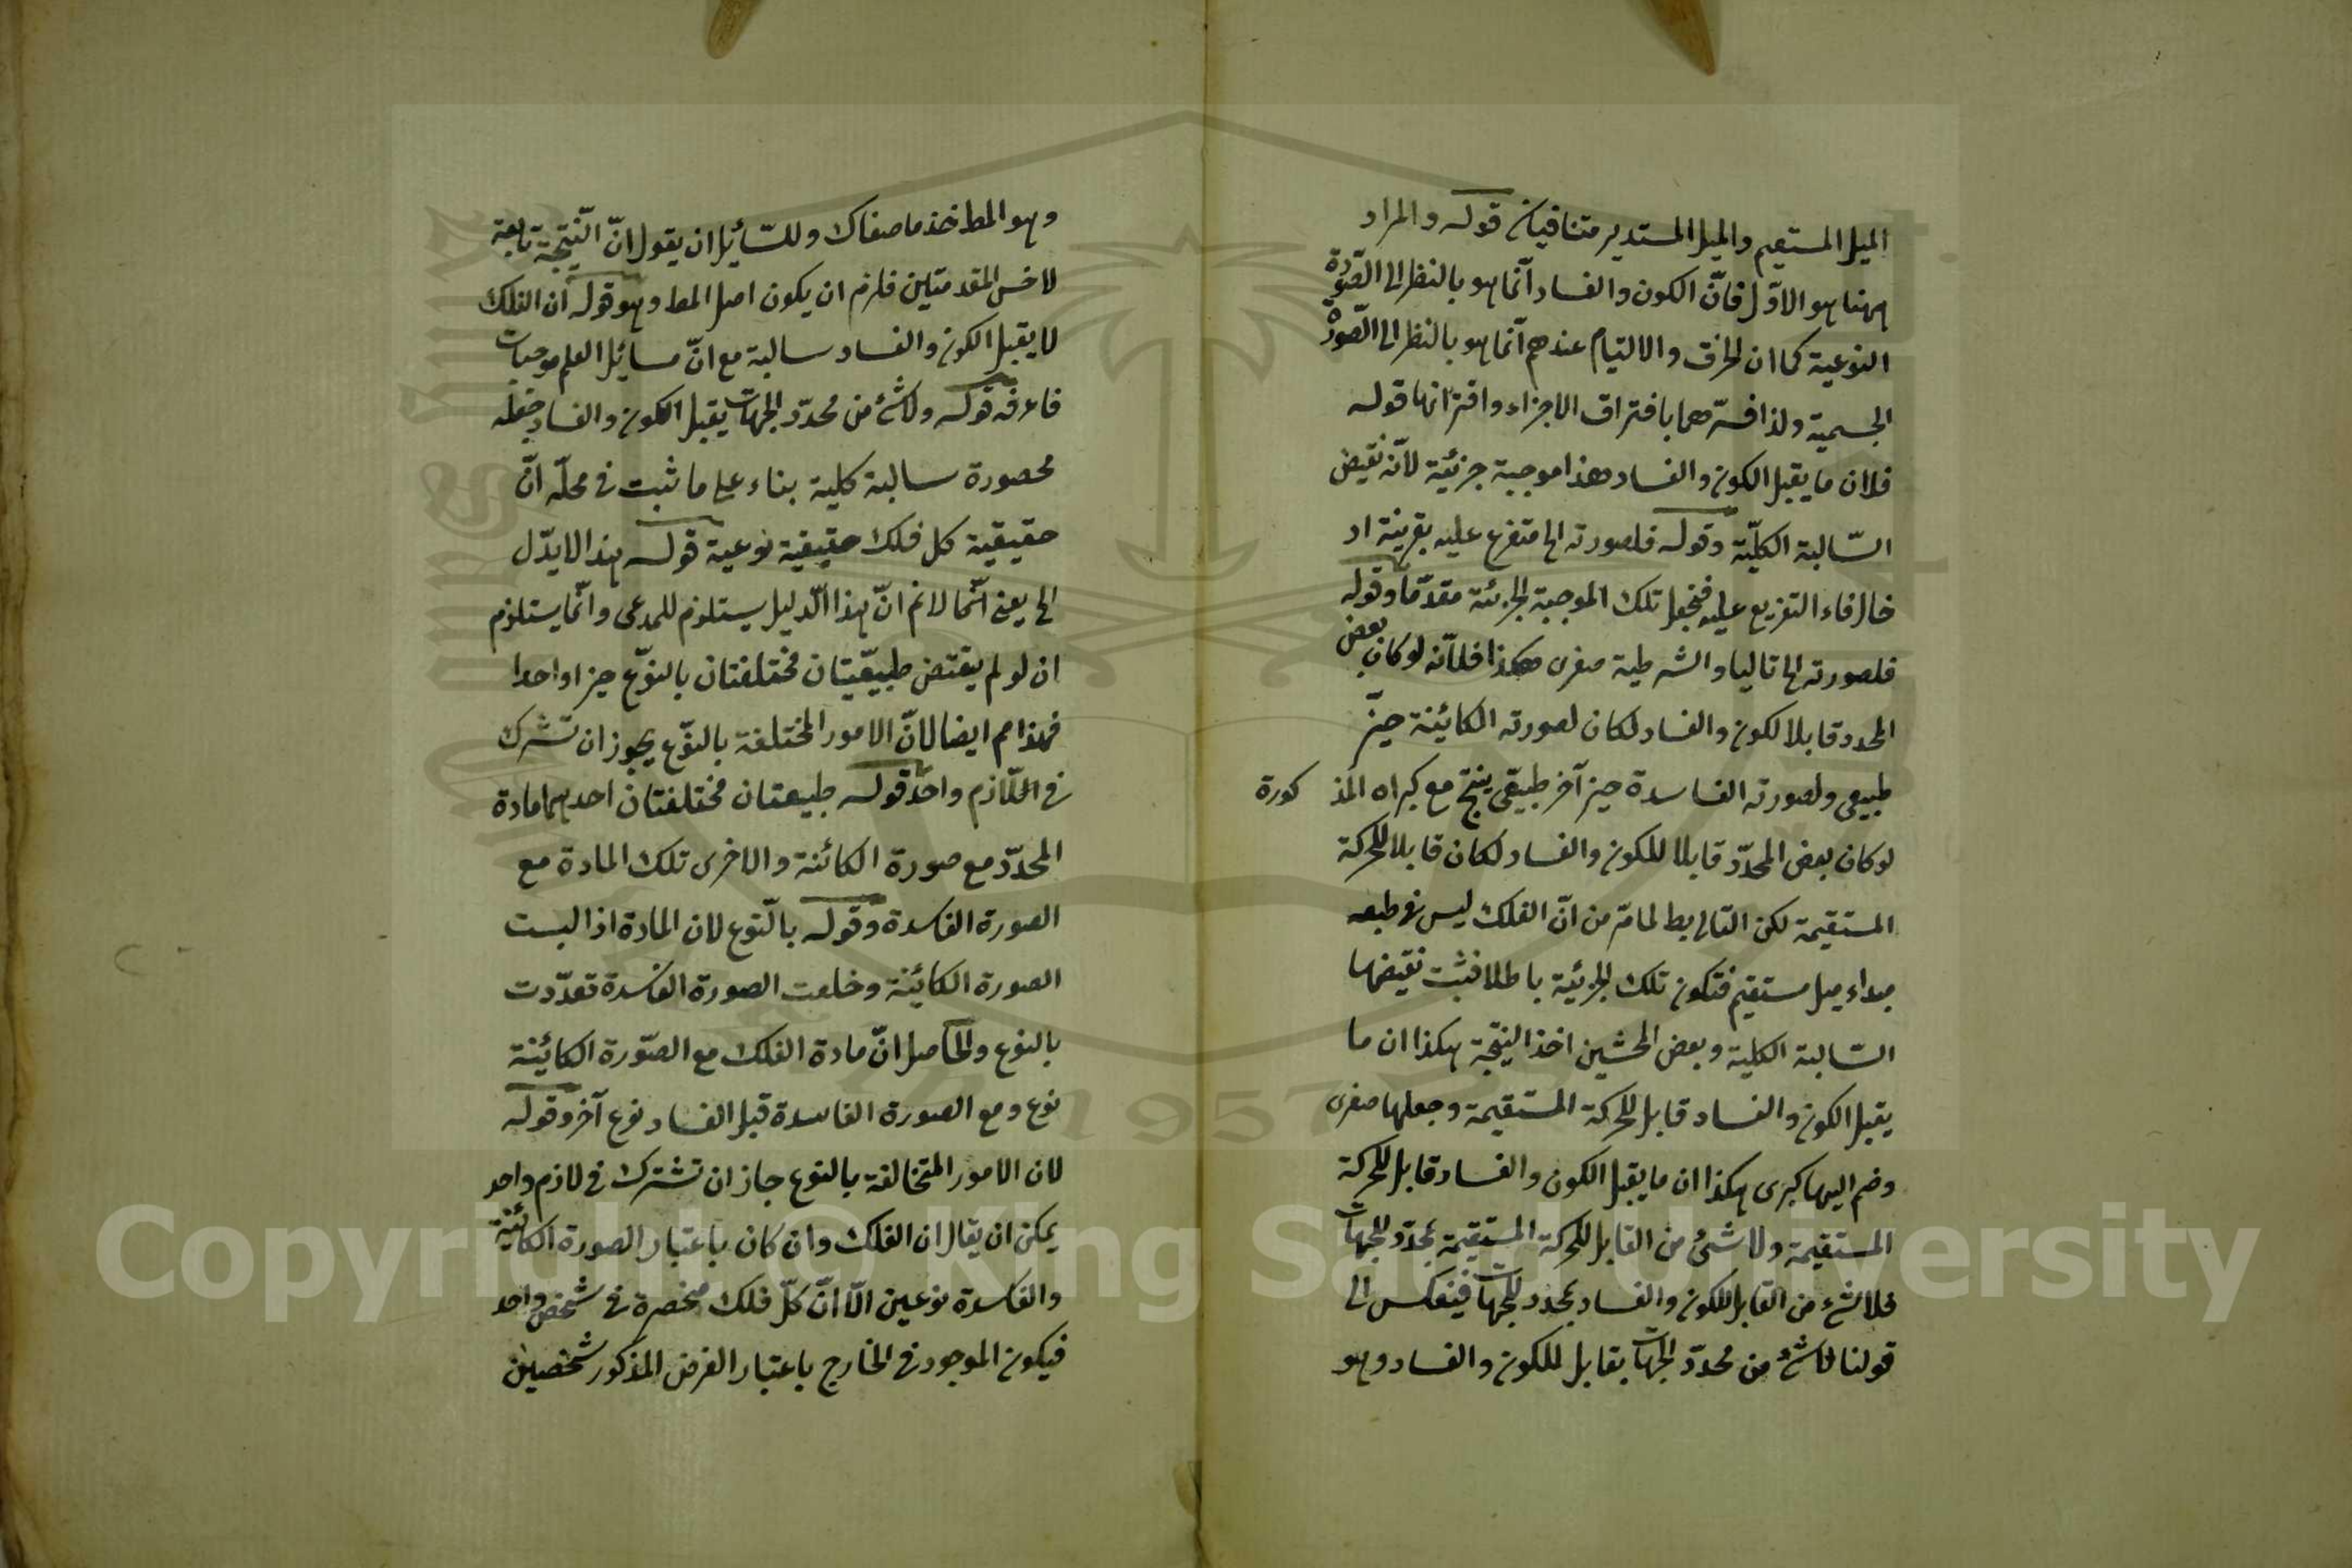 الميل المستقيم والميل المستدير متنافيان قوله والمراد
ههنا هو الاوّل فانّ الكون والفساد انّما هو بالنظر الى الصّورة
النوعية كما ان الخرق والالتيام عندهم انّما هو بالنظر الى الصّورة
الجسمية ولذا فسّرهما بافتراق الاجزاء واقترانها قوله
فلان ما يقبل الكون والفساد هذا موجبة جزئية لانّه نقيض
السّالبة الكليّة وقوله فلصورته الخ متفرع عليه بقرينة اد
خال فاء التفريع عليه فنجعل تلك الموجبة الجزئية مقدّما وقوله
فلصورته الخ تاليا والشرطية صغرى هكذا فلانّه لو كان بعض
المحدد قابلا لكون والفساد لكان لصورته الكائينة حيّز
طبيعى ولصورته الفاسدة حيز آخر طبيعّى ينتج مع كبراه المذ كورة
لو كان بعض المحدّد قابلا للكون والفساد لكان قابلا للحركة
المستقيمة لكن التالى بط لما مّر من انّ الفلك ليس فى طبعه
مبداء ميل مستقيم فتكون تلك الجزئية باطلا فثبت نقيضها
السّالبة الكلية وبعض المحشين اخذ النيتجّة هكذا ان ما
يقبل الكون والفساد قابل للحركة المستقيمة وجعلها صغرى
وضم اليها كبرى هكذا ان ما يقبل الكون والفساد قابل للحركة
المستقيمة ولا شئ من القابل للحركة المستقيمة بمحدّد للجهات
فلا شئ من القابل للكون والفساد بمحدد للجهات فينعكس الى
قولنا لا شئ من محدّد الجهات بقابل للكون والفساد وهو
وهو المط خذ ما صفاك وللسّائيل ان يقول انّ النّتيجة تابعة
لاخس المقدمتين فلزم ان يكون اصل المط وهو قوله ان الفلك
لا يقبل الكون والفساد سالبة مع انّ مسائيل العلم موجبات
فاعرفه قوله ولا شئ من محدّد الجهات يقبل الكون والفساد جعله
محصورة سالبة كلية بناء على ما ثبت فى محلّه انّ
حقيقية كل فلك حقيقية نوعية قوله هذا لا يدّل
الخ يعنى انّما لا نم انّ هذا الدّليل يستلزم للمدعى وانّما يستلزم
ان لو لم يقتض طبيعّيتان مختلفتان بالنوّع حيزا واحدا
فهذا مم ايضا لانّ الامور المختلفة بالنوّع يجوز ان تشرك
فى اللّازم واحد قوله طبيعتان مختلفتان احديهما مادة
المحدّد مع صورة الكائنة والاخرى تلك المادة مع
الصورة الفاسدة وقوله بالنّوع لان المادة اذا لبست
الصورة الكائينة وخلعت الصورة الفاسدة تعدّدت
بالنوع والحاصل انّ مادة الفلك مع الصّورة الكائينة
نوع ومع الصورة الفاسدة قبل الفساد نوع آخر وقوله
لان الامور المتخالفة بالنوع جاز ان تشترك فى لازم واحد
يمكن ان يقال ان الفلك وان كان باعتبار الصورة الكائينة
والفاسدة نوعين الّا انّ كلّ فلك منحصرة فى شخص واحد
فيكون الموجود فى الخارج باعتبار الفرض المذكور شخصين
Copyright © King Saud University
1957